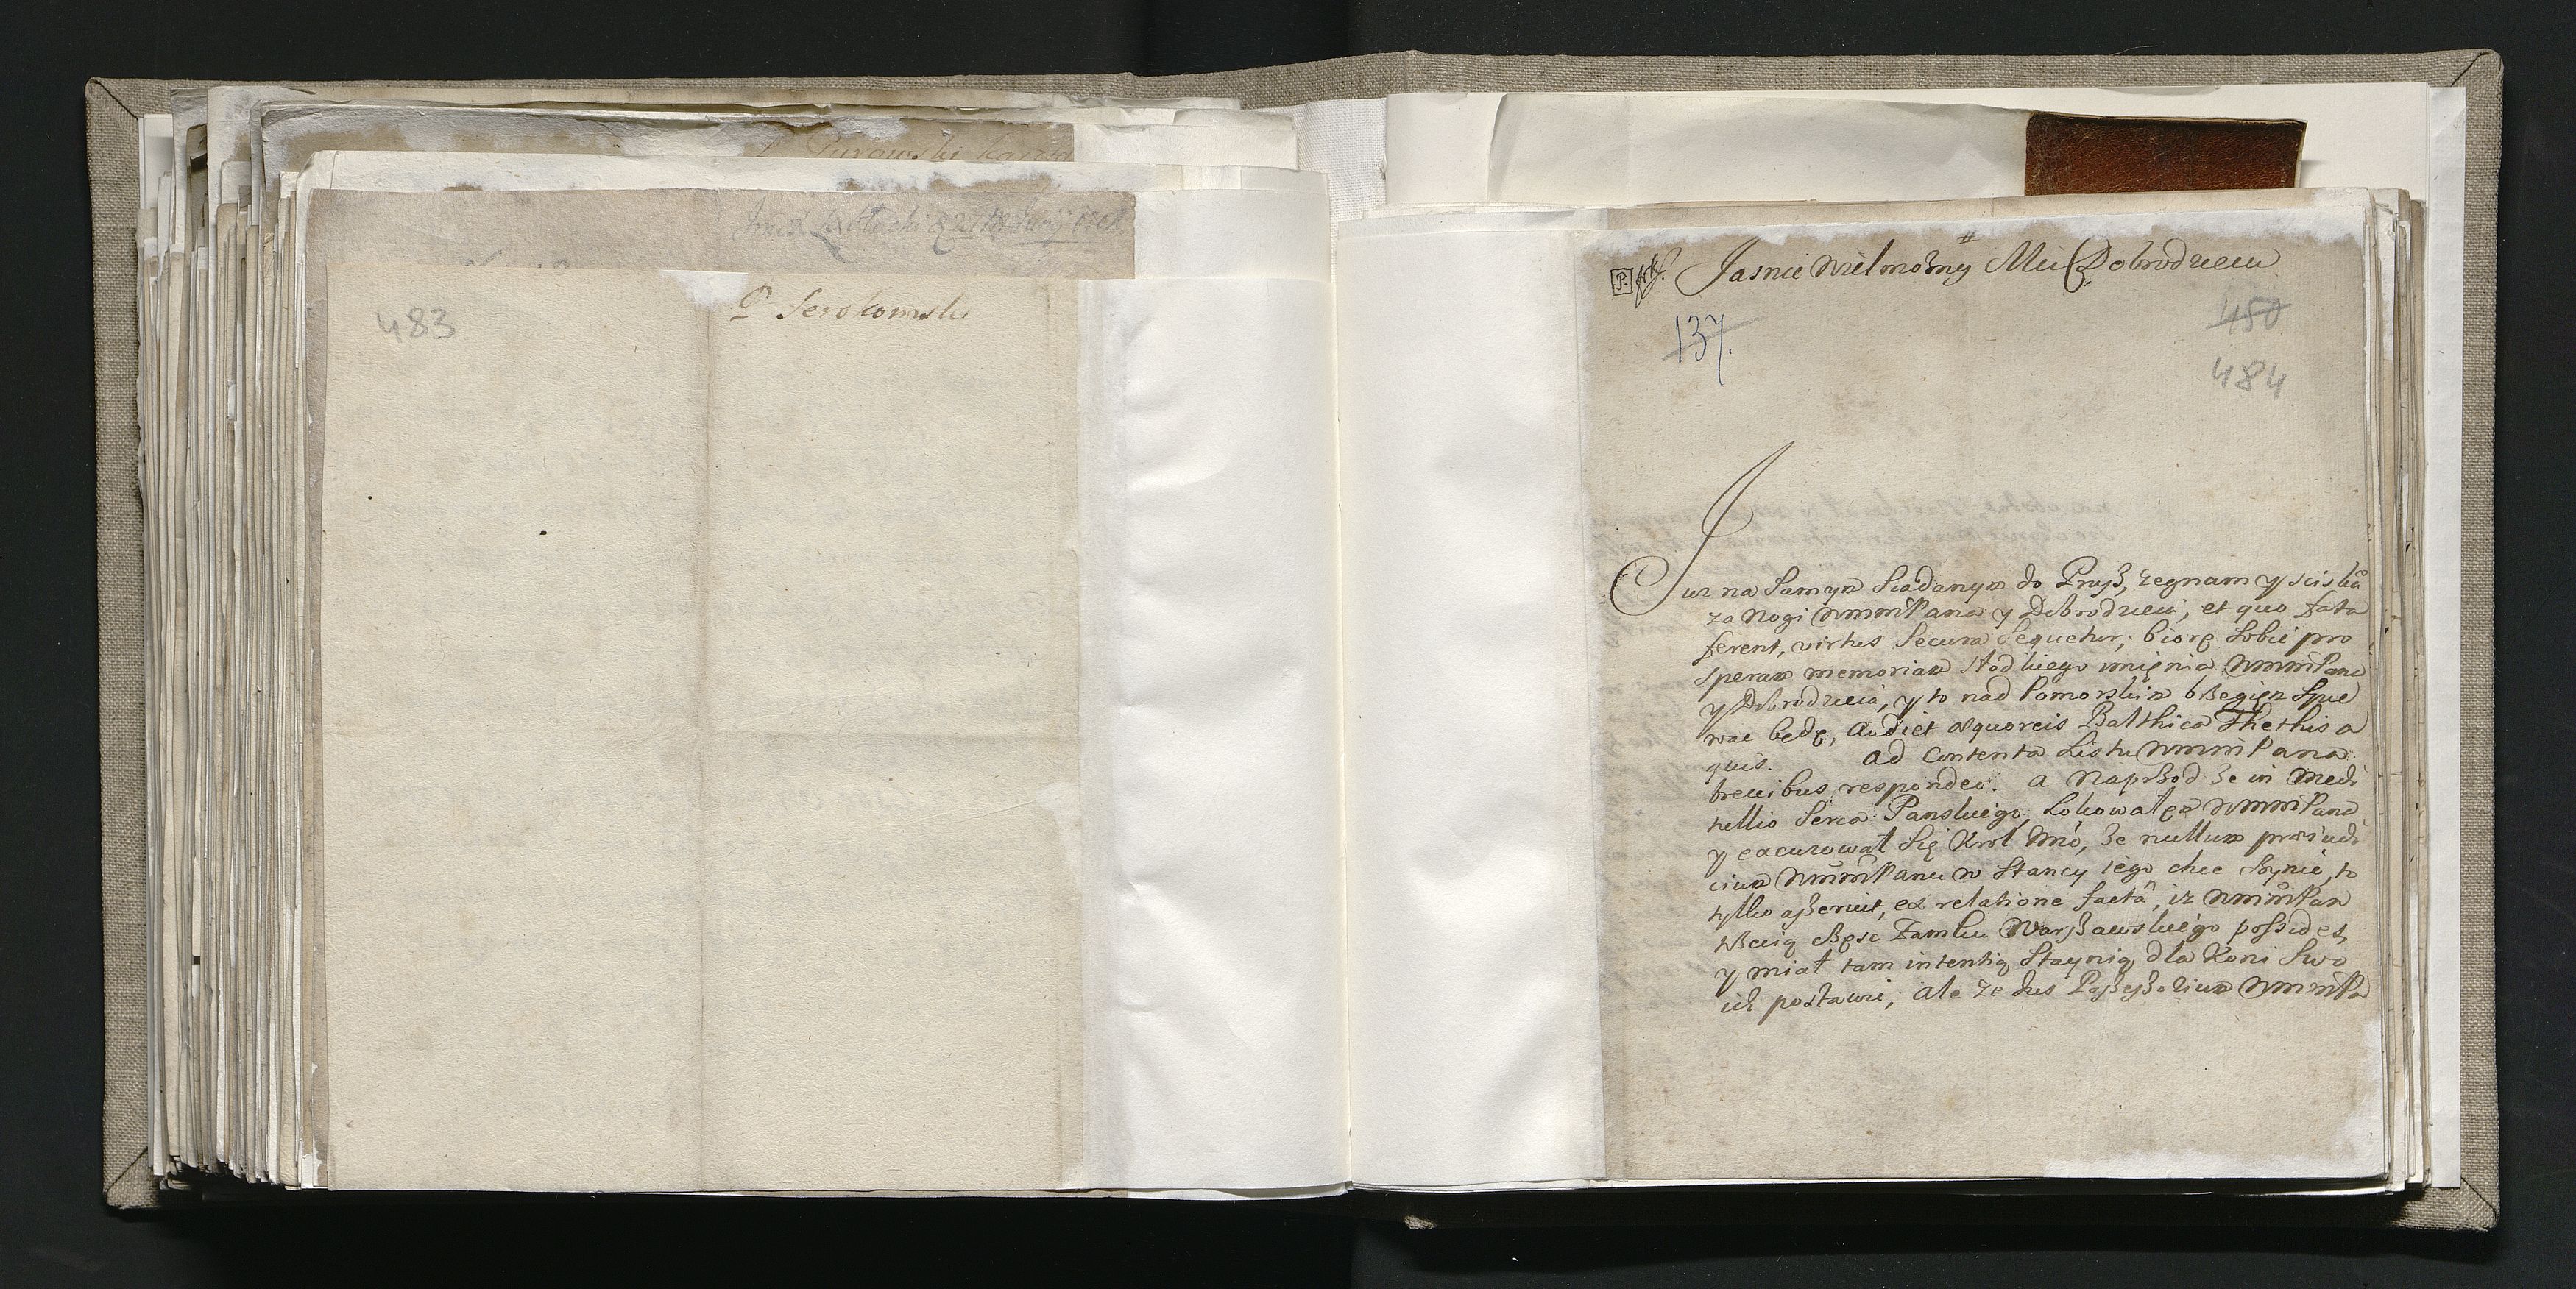 483
P. Serokomski
Jasnie Wielmożny Mci Dobrodzieiu
137.
450
484
Iuz na Samym Siadanym do Prusz, zegnam y sciskã
za Nogi WMMPana y Dobrodzieia, et quo fata
ferent, virtus Secura Sequetur; biorę Sobie pro
speram memoriam słodkiego imięnia WMMPana
y Dobrodzieia, y to nad Pomorskim bßegięm Spie
wac bedę, Audiet æquoreis Balthica Thethis a
quis. Ad Contenta Listu WMMPana
brevibus respondeo. A Naprßod że in Medi
tullio Serca Panskiego, Lokowałem WMMPana
y excuzował Się Krol Mć, że nullum præiudi
cium WMMPanu w Stancy iego chce czynic, to
tylko aßeruit, ex relatione factâ, iz WMMPan
tßecią cßęsc Zamku Warßawskiego possidet,
y miał tam intentią Staynią dla Koni Swo
ich postawic; Ale ze Ius Poßeßorium WMMPa